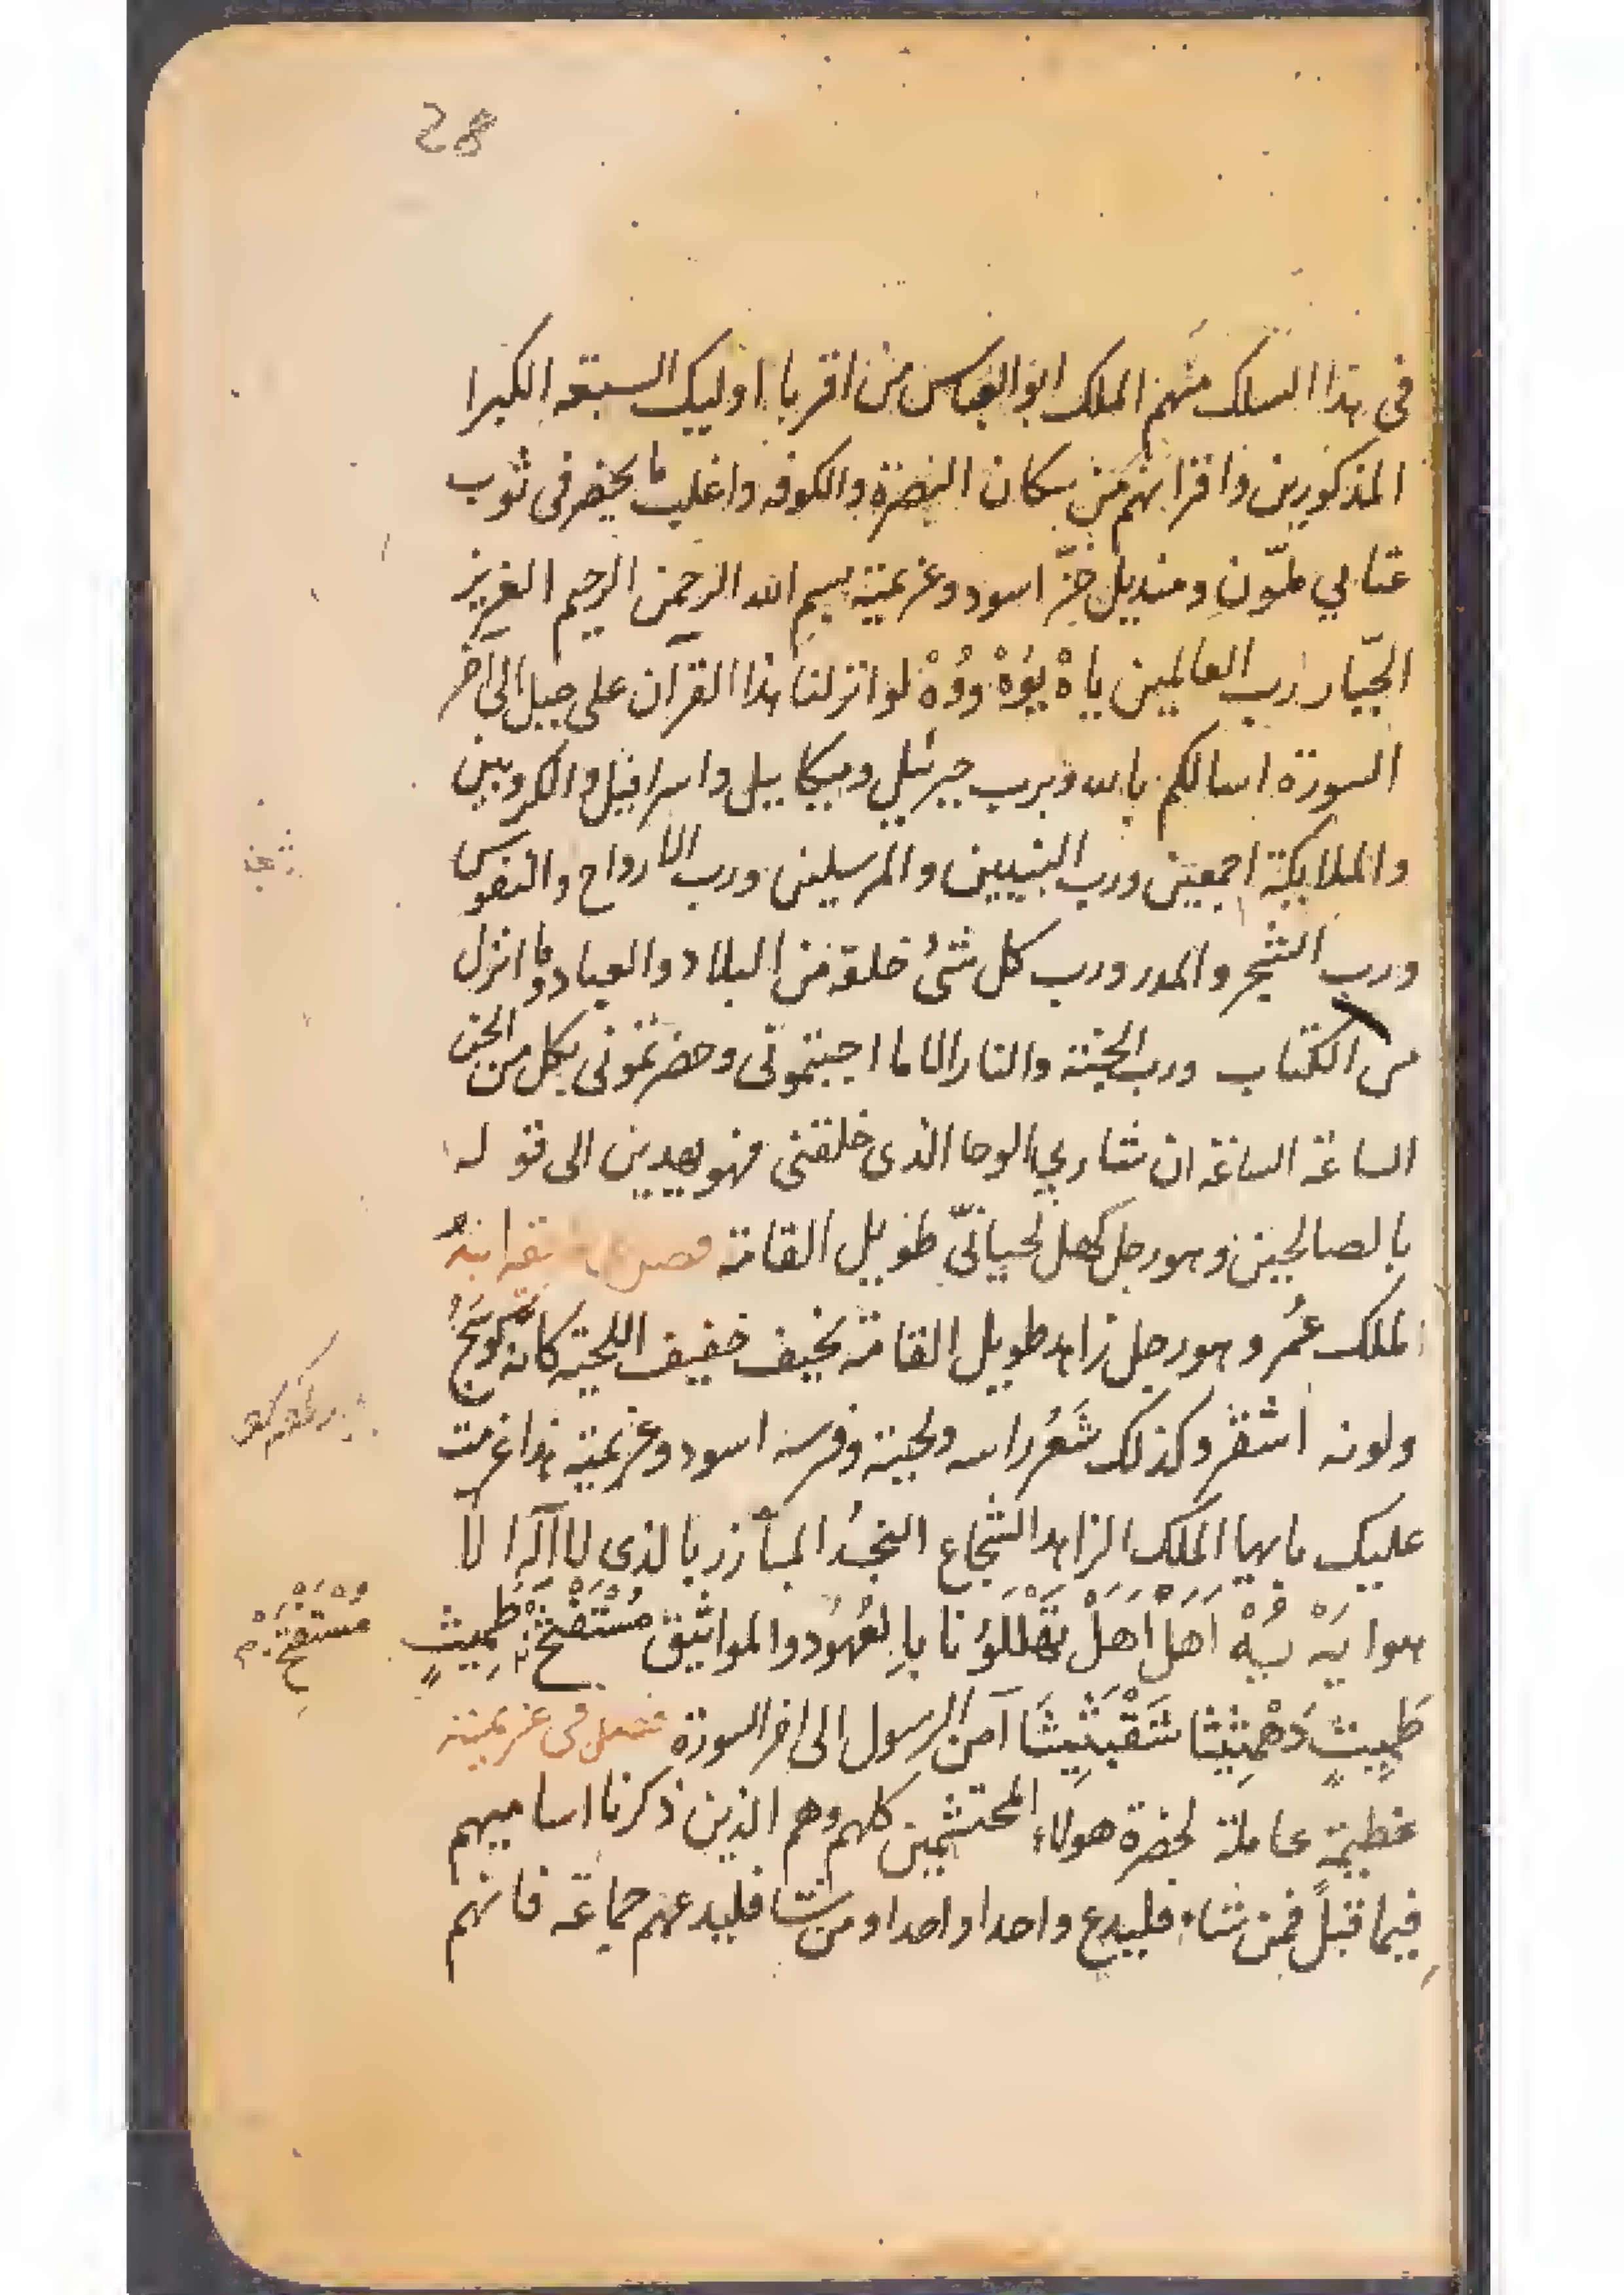 28
فى هذا السلك منهم الملك ابو العباس من اقربا اوليك السبعه الكبرا
المذكورين واقرابهم من سكان البصرة والكوفه واغلب ما يحضر فى ثوب
عتابي ملوّن ومنديل خزّ اسود وعزيمته بسم الله الرحمن الرحيم العزيز
الجبّار رب العالمين ياهْ يُوهْ ووُهْ لو انزلنا هذا القرآن على جبل الى آخر
السورة اسالكم بالله وبرب جبرئيل وميكاييل واسرافيل والكروبين
والملايكة اجمعين ورب النبيين والمرسلين ورب الارواح والنفوس
ورب الشجر والمدر ورب كل شئ خلقه من البلاد والعباد وما انزل
من الكتاب ورب الجنة والنار الا ما اجبتمونى وحضرتمونى بكل من الجن
الساعة الساعة ان شا ربي الوحا الذى خلقنى فهو يهدين الى قوله
بالصالحين وهو رجل كهل لحيانىّ طويل القامة
الملك عُمر وهو رجل زاهد طويل القامة نحيف خفيف اللحية كانه كوسج
ولونه اشقر وكذلك شَعُر راسه ولحيته وفرسه اسود وعزيمته هذا عزمت
عليك يا ايها الملك الزاهد الشجاع النجدُ المبارز بالذى لا اله الا
هوا يَهْ بُهْ اَهَلْ اَهَلْ نا بِالعُهُود والمواثيق مُسْتَفْتِح طَمِيثٍ
طَمِيثٍ دَهْمِيثا آمن الرسول الى اخر السورة فصل فى عزيمة
عظيمة عاملة لحضرة هولاء المحتشمين كلهم وهم الذين ذكرنا اساميهم
فيما قبلُ فمن شاء فليدع واحدا واحدا ومن شا فليدعهم جماعة فانهم
مُسْتفتِح